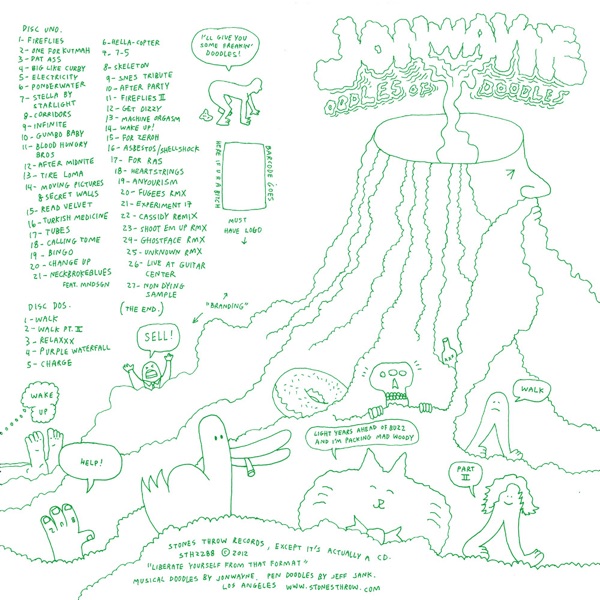 DISC UNO.
1- FIREFLIES
2- ONE FOR KUTMAH
3- PAT ASS
4- BIG LIKE CURBY
5- ELECTRICITY
6- PONDERWATER
7- STELLA BY
STARLIGHT
8- CORRIDORS
9- INFINITE
10- GUMBO BABY
11- BLOOD HUNGRY
BROS
12- AFTER MIDNITE
13- TIRE LOMA
14- MOVING PICTURES
& SECRET WALLS
15- READ VELVET
16- TURKISH MEDICINE
17- TUBES
18- CALLING TOME
19- BINGO
20- CHANGE UP
21- NECKBROKEBLUES
FEAT. MNDSGN
DISC DOS.
1- WALK
2- WALK PT. II
3- RELAXXX
4- PURPLE WATERFALL
5- CHARGE
6- HELLA-COPTER
7- 7-5
8- SKELETON
9- SNES TRIBUTE
10- AFTER PARTY
11- FIREFLIES II
12- GET DIZZY
13- MACHINE ORGASM
14- WAKE UP!
15- FOR ZEROH
16- ASBESTOS/SHELLSHOCK
17- FOR RAS
18- HEARTSTRINGS
19- ANYOURISM
20- FUGEES RMX
21- EXPERIMENT 17
22- CASSIDY REMIX
23- SHOOT EM UP RMX
24- GHOSTFACE RMX
25- UNKNOWN RMX
26- LIVE AT GUITAR
CENTER
27- NON DYING
SAMPLE
(THE END.)
I'LL GIVE YOU
SOME FREAKIN'
DOODLES!
BARCODE GOES
HERE IF U R A BITCH
MUST
HAVE LOGO
"BRANDING"
JONWAYNE
OODLES OF DOODLES
SELL!
WAKE
UP
HELP!
LIGHT YEARS AHEAD OF BUZZ
AND I'M PACKING MAD WOODY
WALK
PART
II
STONES THROW RECORDS, EXCEPT IT'S ACTUALLY A CD.
STH2288 © 2012
"LIBERATE YOURSELF FROM THAT FORMAT"
MUSICAL DOODLES BY JONWAYNE, PEN DOODLES BY JEFF JANK.
LOS ANGELES WWW.STONESTHROW.COM